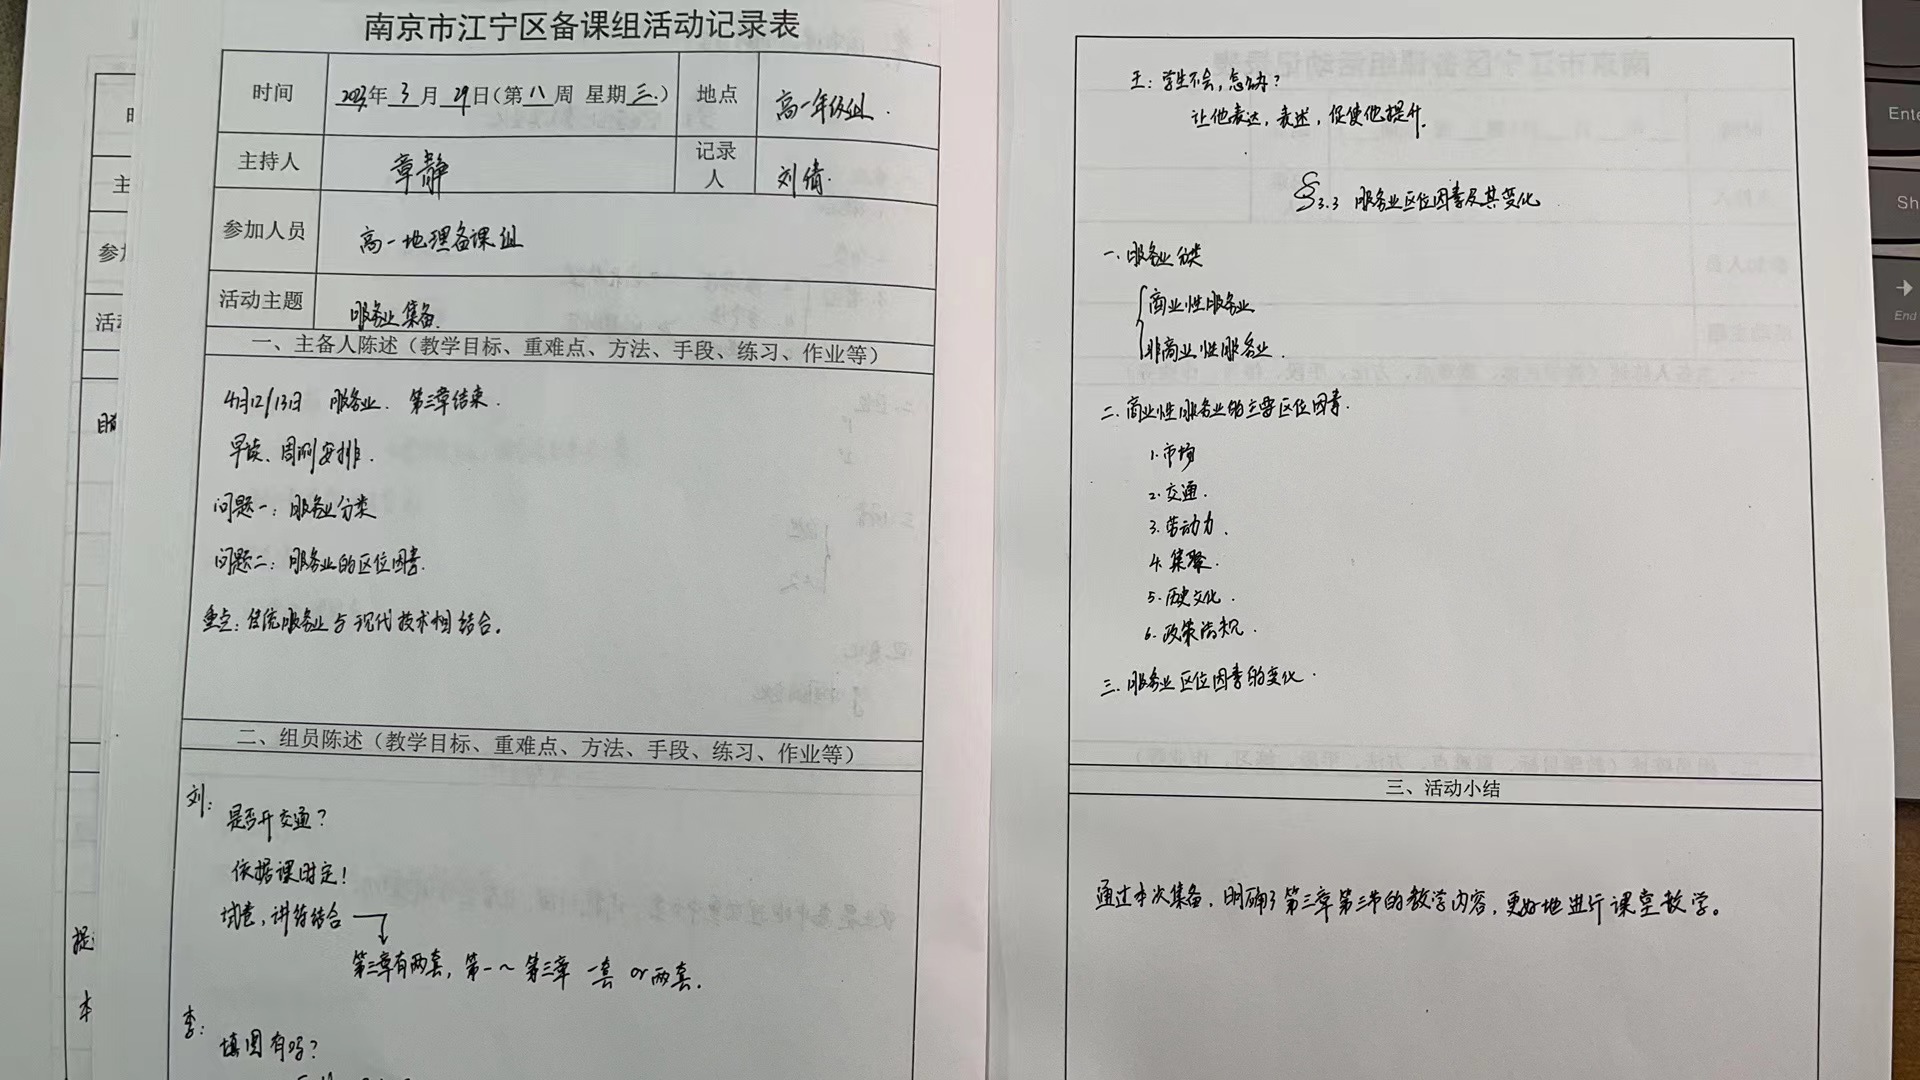 南京市江宁区备课组活动记录表
时间 2023年3月29日(第八周 星期三) 地点 高一年级组.
主持人 章静 记录人 刘倩.
参加人员 高一地理备课组
活动主题 服务业集备.
一、主备人陈述(教学目标、重难点、方法、手段、练习、作业等)
4月12/13日 服务业. 第三章结束.
早读、周测安排.
问题一:服务业分类
问题二:服务业的区位因素.
重点:传统服务业与现代技术相结合。
二、组员陈述(教学目标、重难点、方法、手段、练习、作业等)
刘:
是否开交通?
依据课时定!
试卷,讲练结合
第三章有两套,第一~第三章 一套 or 两套.
李:
填图有吗?
王:学生不会,怎么办?
让他表达,表述,促使他提升.
§3.3 服务业区位因素及其变化
一.服务业分类
商业性服务业
非商业性服务业.
二.商业性服务业的主要区位因素.
1.市场
2.交通.
3.劳动力.
4.集聚.
5.历史文化.
6.政策法规.
三.服务业区位因素的变化.
三、活动小结
通过本次集备,明确了第三章第三节的教学内容,更好地进行课堂教学。
Ente
Sh
End